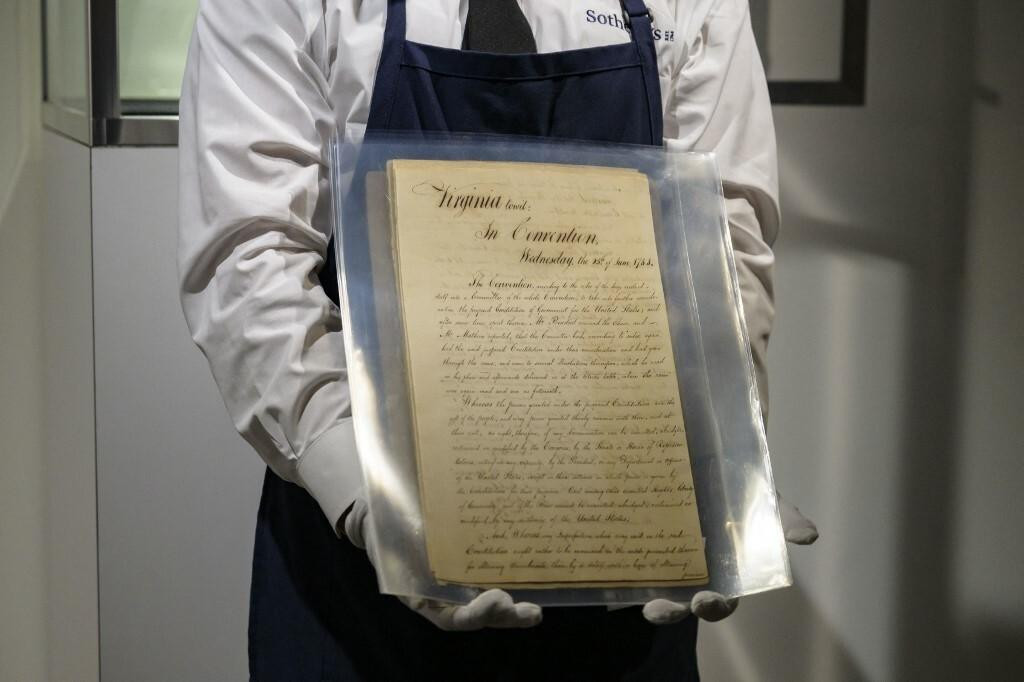 Soth
Virginia towit:
In Convention,
Wednesday, the 25th of June, 1788.
The Convention, according to the order of the day, resolved
itself into a Committee of the whole Convention, to take into farther consider-
ation the proposed Constitution of Government for the United States; and
after some time spent therein, Mr President resumed the Chair, and
Mr Mathews reported, that the Committee had, according to order, again
had the said proposed Constitution under their consideration and had gone
through the same, and come to several Resolutions thereupon, which he read
in his place and afterwards delivered in at the Clerks table, where the same
were again read and are as followeth.
Whereas the powers granted under the proposed Constitution are the
gift of the people, and every power not granted thereby remains with them, and at
their will; no right, therefore, of any denomination can be cancelled, abridged,
restrained or modified by the Congress, by the Senate or House of Represen-
tatives, acting in any capacity, by the President, or any Department or Officer
of the United States, except in those instances in which power is given by
the Constitution for those purposes: And among other essential Rights, liberty
of Conscience, and of the Press cannot be cancelled abridged, restrained or
modified by any authority of the United States;
And, Whereas any Imperfections which may exist in the said
Constitution ought rather to be examined in the mode prescribed therein
for obtaining Amendments, than by a delay, with a hope of obtaining